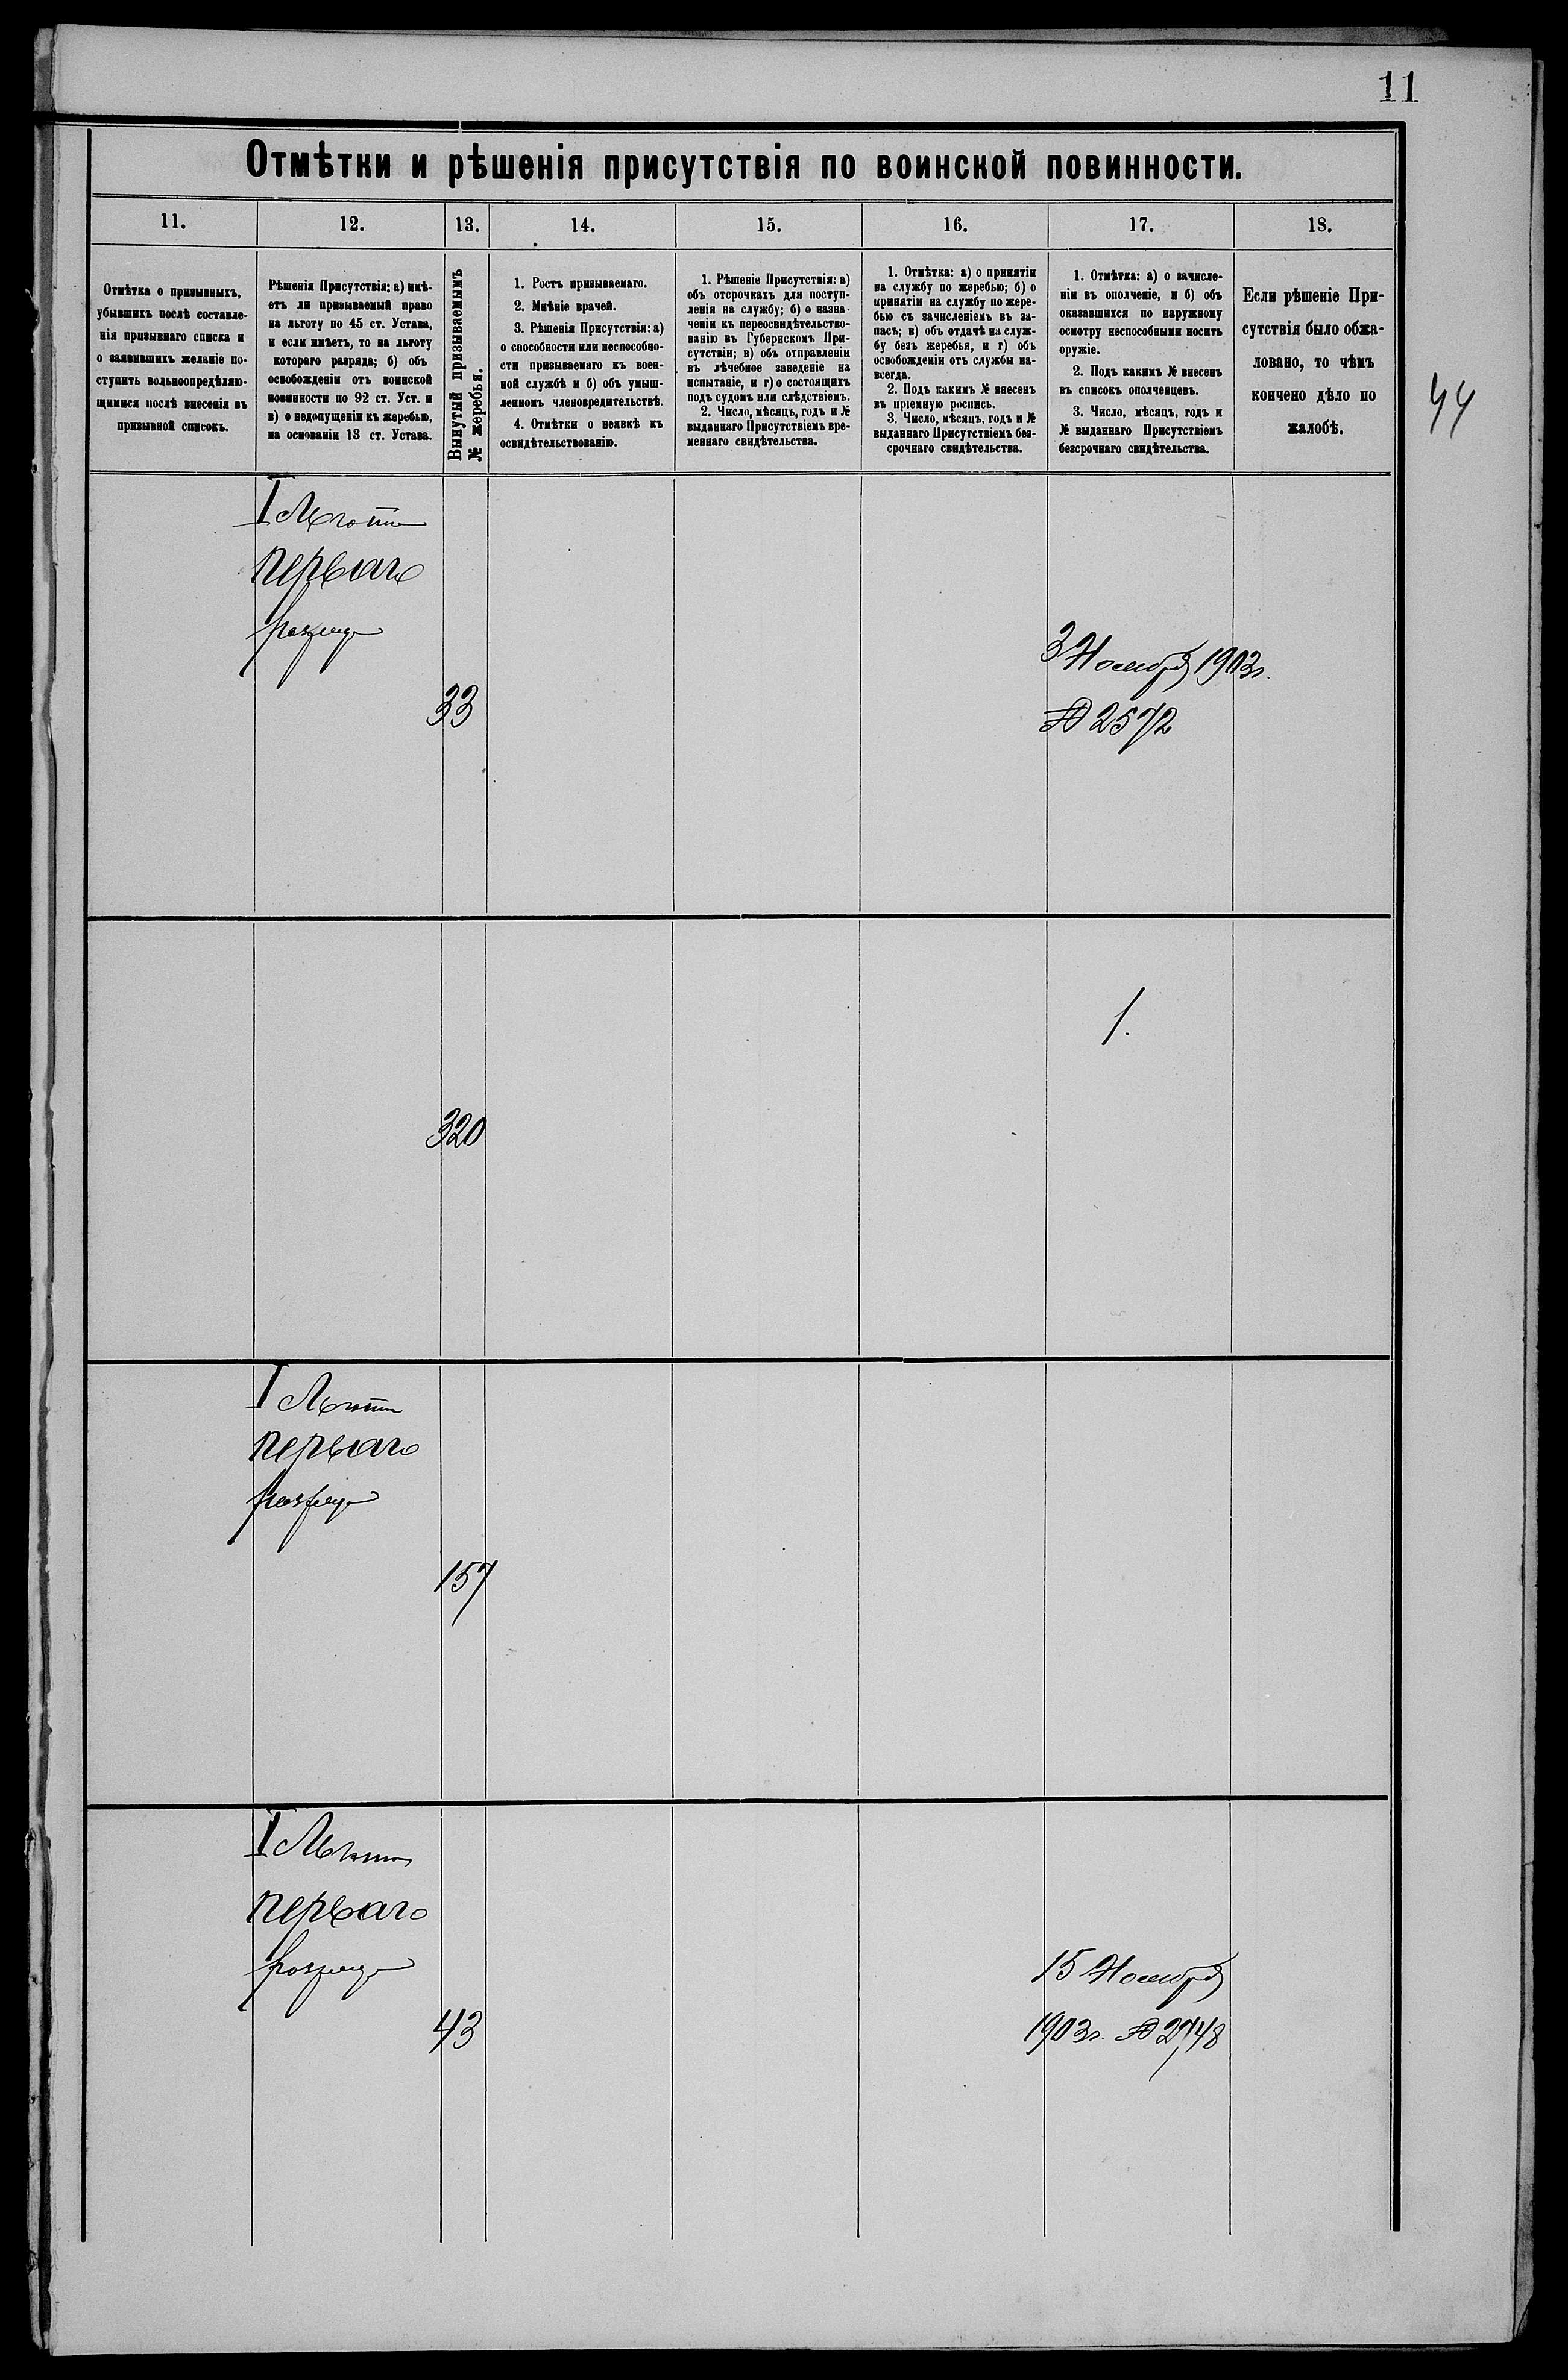 11
Отмѣтки и рѣшенія присутствія по воинской повинности.
11. 12. 13. 14. 15. 16. 17. 18.
Отмѣтка о призывныхъ,
убывшихъ послѣ составле-
нія призывнаго списка и
о заявившихъ желаніе по-
ступить вольноопредѣляю-
щимися послѣ внесенія въ
призывной списокъ.
Рѣшенія Присутствія: а) имѣ-
етъ ли призываемый право
на льготу по 45 ст. Устава,
и если имѣетъ, то на льготу
котораго разряда; б) объ
освобожденіи отъ воинской
повинности по 92 ст. Уст. и
в) о недопущеніи къ жеребью,
на основаніи 13 ст. Устава.
Вынутый призываемымъ
№ жеребья.
1. Ростъ призываемаго.
2. Мнѣніе врачей.
3. Рѣшенія Присутствія: а)
о способности или неспособно-
сти призываемаго къ воен-
ной службѣ и б) объ умыш-
ленномъ членовредительствѣ.
4. Отмѣтки о неявкѣ къ
освидѣтельствованію.
1. Рѣшеніе Присутствія: а)
объ отсрочкахъ для поступ-
ленія на службу; б) о назна-
ченіи къ переосвидѣтельство-
ванію въ Губернскомъ При-
сутствіи; в) объ отправленіи
въ лѣчебное заведеніе на
испытаніе, и г) о состоящихъ
подъ судомъ или слѣдствіемъ.
2. Число, мѣсяцъ, годъ и №
выданнаго Присутствіемъ вре-
меннаго свидѣтельства.
1. Отмѣтка: а) о принятіи
на службу по жеребью; б) о
принятіи на службу по жере-
бью съ зачисленіемъ въ за-
пасъ; в) объ отдачѣ на служ-
бу безъ жеребья, и г) объ
освобожденіи отъ службы на-
всегда.
2. Подъ какимъ № внесенъ
въ пріемную роспись.
3. Число, мѣсяцъ, годъ и №
выданнаго Присутствіемъ без-
срочнаго свидѣтельства.
1. Отмѣтка: а) о зачисле-
ніи въ ополченіе, и б) объ
оказавшихся по наружному
осмотру неспособными носить
оружіе.
2. Подъ какимъ № внесенъ
въ списокъ ополченцевъ.
3. Число, мѣсяцъ, годъ и
№ выданнаго Присутствіемъ
безсрочнаго свидѣтельства.
Если рѣшеніе При-
сутствія было обжа-
ловано, то чѣмъ
кончено дѣло по
жалобѣ.
44
I Льготы
перваго
разряда
33
3 Ноября 1903 г.
№ 2572
1.
320
I Льготы
перваго
разряда
157
I Льготы
перваго
разряда
43
15 Ноября
1903 г. № 2748